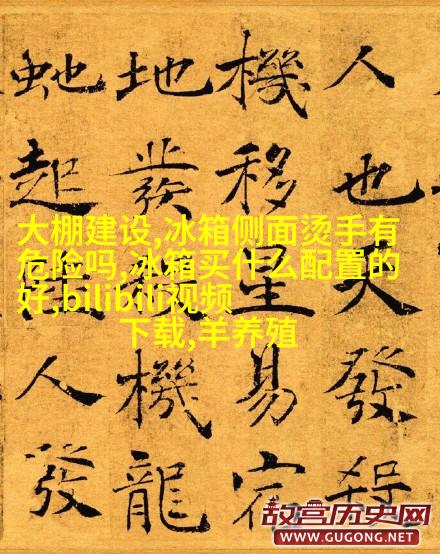 人也天發殺
機移星易宿
地發機龍
虵起人發
大棚建设,冰箱侧面烫手有
危险吗,冰箱买什么配置的
好,bilibili视频
下载,羊养殖
故宫历史网
WWW.GUGONG.NET